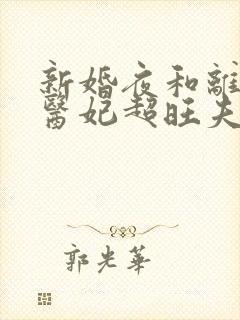 新婚夜和離
醫妃超旺夫
郭光華